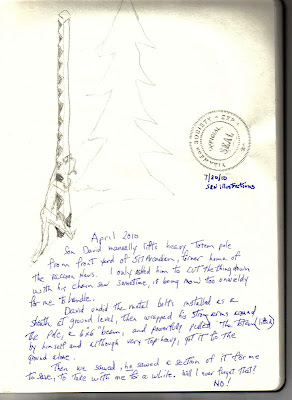 SOCIETY
OFFICIAL
7/20/10
SBN illustrations
April 2010
Son David manually lifts heavy Totem pole
from front yard of 517 Arcadian, former home of
the Raccoon News. I only asked him to CUT the thing down
with his chain saw sometime, it being now too unwieldy
for me to handle.
David undid the metal bolts installed as a
sheath at ground level, then wrapped his strong arms around
the pole, a 6x6 beam, and powerfully pulled the Totem
by himself and although very top heavy, got it to the
ground alone.
Then we sawed, he sawed a section of it for me
to save, to take with me to a while. Will I ever forget that?
NO!